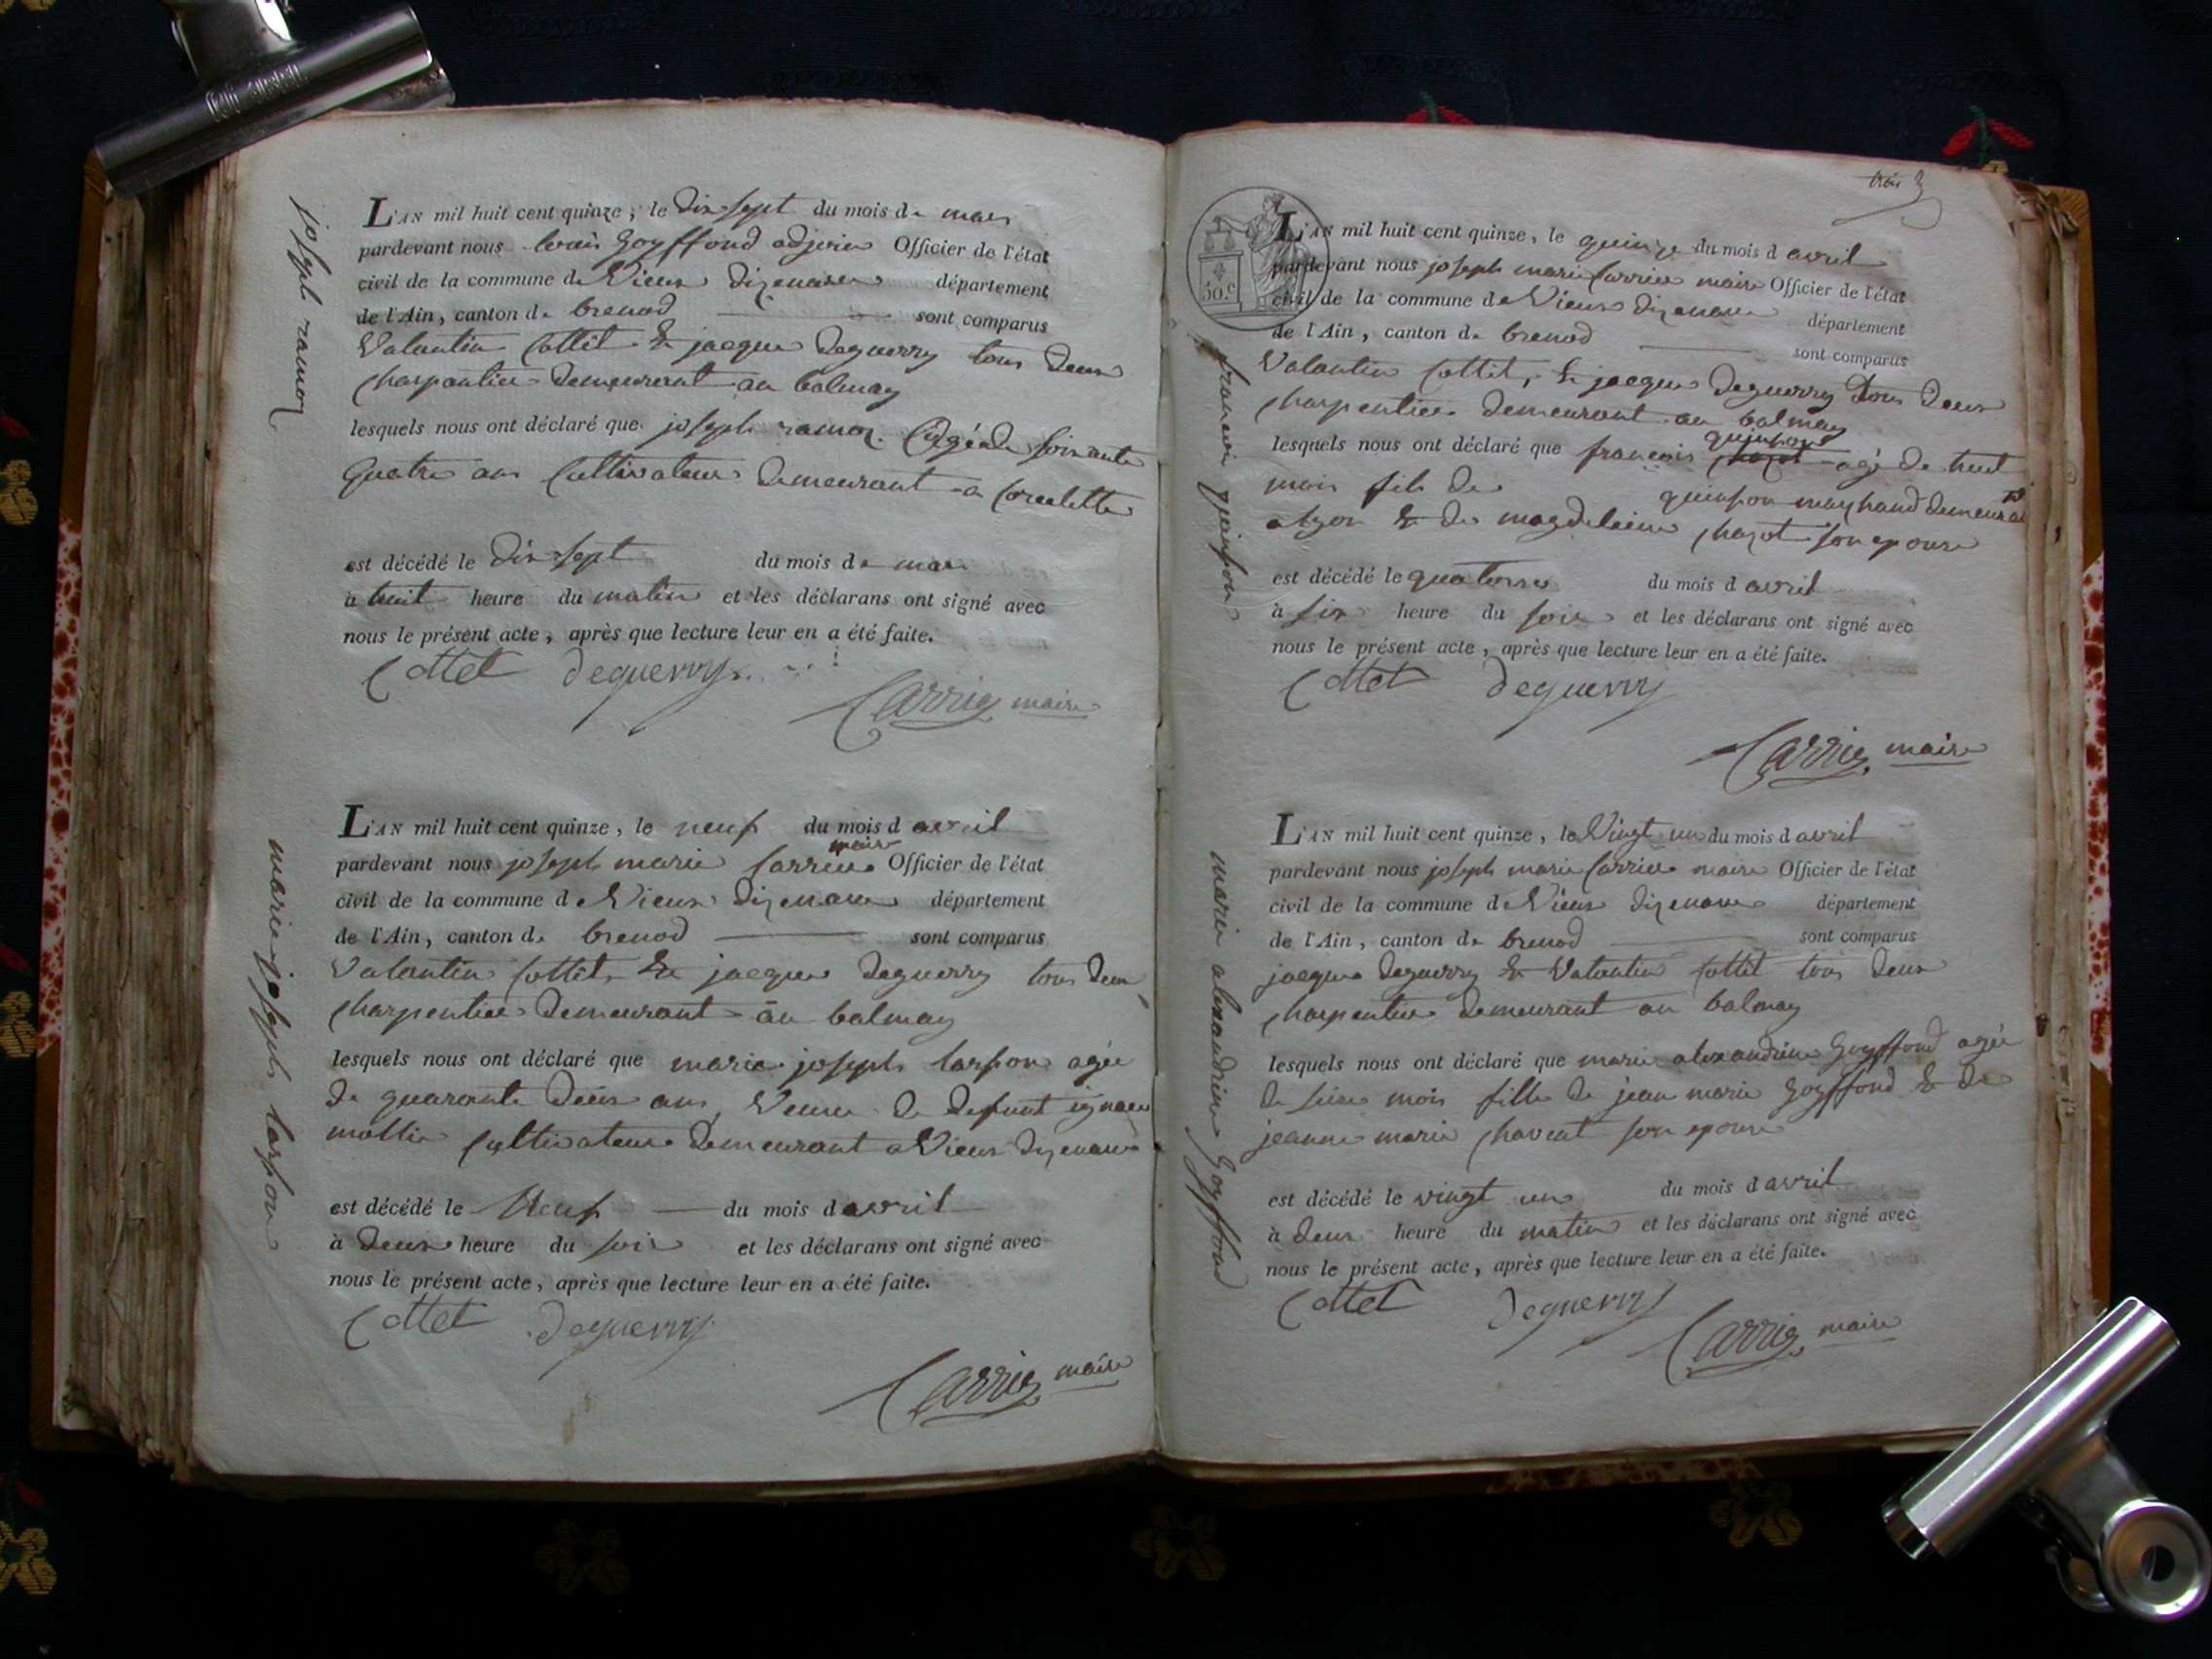 joseph ramoz
L'AN mil huit cent quinze, le dix sept du mois de mars
pardevant nous louis goyffond adjoin Officier de l'état
civil de la commune de Vieux dizenave département
de l'Ain, canton de brenod sont comparus
Valantin Cottet & jacque deguerry tous deux
charpantier demeurant au balmay
lesquels nous ont déclaré que joseph ramoz agé de soixante
quatre ans Cultivateur demeurant a
est décédé le dix sept du mois de mars
à huit heure du matin et les déclarans ont signé avec
nous le présent acte, après que lecture leur en a été faite.
Cottet deguerry
Carrier maire
marie joseph tarpon
L'AN mil huit cent quinze, le neuf du mois d avril
maire
pardevant nous joseph marie Carrier Officier de l'état
civil de la commune de Vieux dizenave département
de l'Ain, canton de brenod sont comparus
Valantin Cottet, & jacque deguerry tous deux
charpentier demeurant au balmay
lesquels nous ont déclaré que marie joseph tarpon agée
de quarante deux ans, Veuve de defunt ignace
mollie Cultivateur demeurant a Vieux dizenave
est décédé le Neuf du mois d avril
à deux heure du soir et les déclarans ont signé avec
nous le présent acte, après que lecture leur en a été faite.
Cottet deguerry
Carrier maire
trois 3
50.c
francois quinson
L'AN mil huit cent quinze, le quinze du mois d avril
pardevant nous joseph marie Carrier maire Officier de l'état
civil de la commune de Vieux dizenave département
de l'Ain, canton de brenod sont comparus
Valantin Cottet, & jacque deguerry tous deux
charpentier demeurant au balmay
quinson
lesquels nous ont déclaré que francois chazot agé de huit
mois fils de quinson marchand demeurant
a lyon & de magdelaine chazot son epouse
est décédé le quatorse du mois d avril
à six heure du soir et les déclarans ont signé avec
nous le présent acte, après que lecture leur en a été faite.
Cottet deguerry
Carrier maire
marie alexandrine goyffond
L'AN mil huit cent quinze, le Vingt un du mois d avril
pardevant nous joseph marie Carrier maire Officier de l'état
civil de la commune de Vieux dizenave département
de l'Ain, canton de brenod sont comparus
jacque deguerry & Valantin Cottet tous deux
charpentier demeurant au balmay
lesquels nous ont déclaré que marie alexandrine goyffond agée
de mois fille de jean marie goyffond & de
jeanne marie chavent son epouse
est décédé le vingt un du mois d avril
à deux heure du matin et les déclarans ont signé avec
nous le présent acte, après que lecture leur en a été faite.
Cottet deguerry
Carrier maire